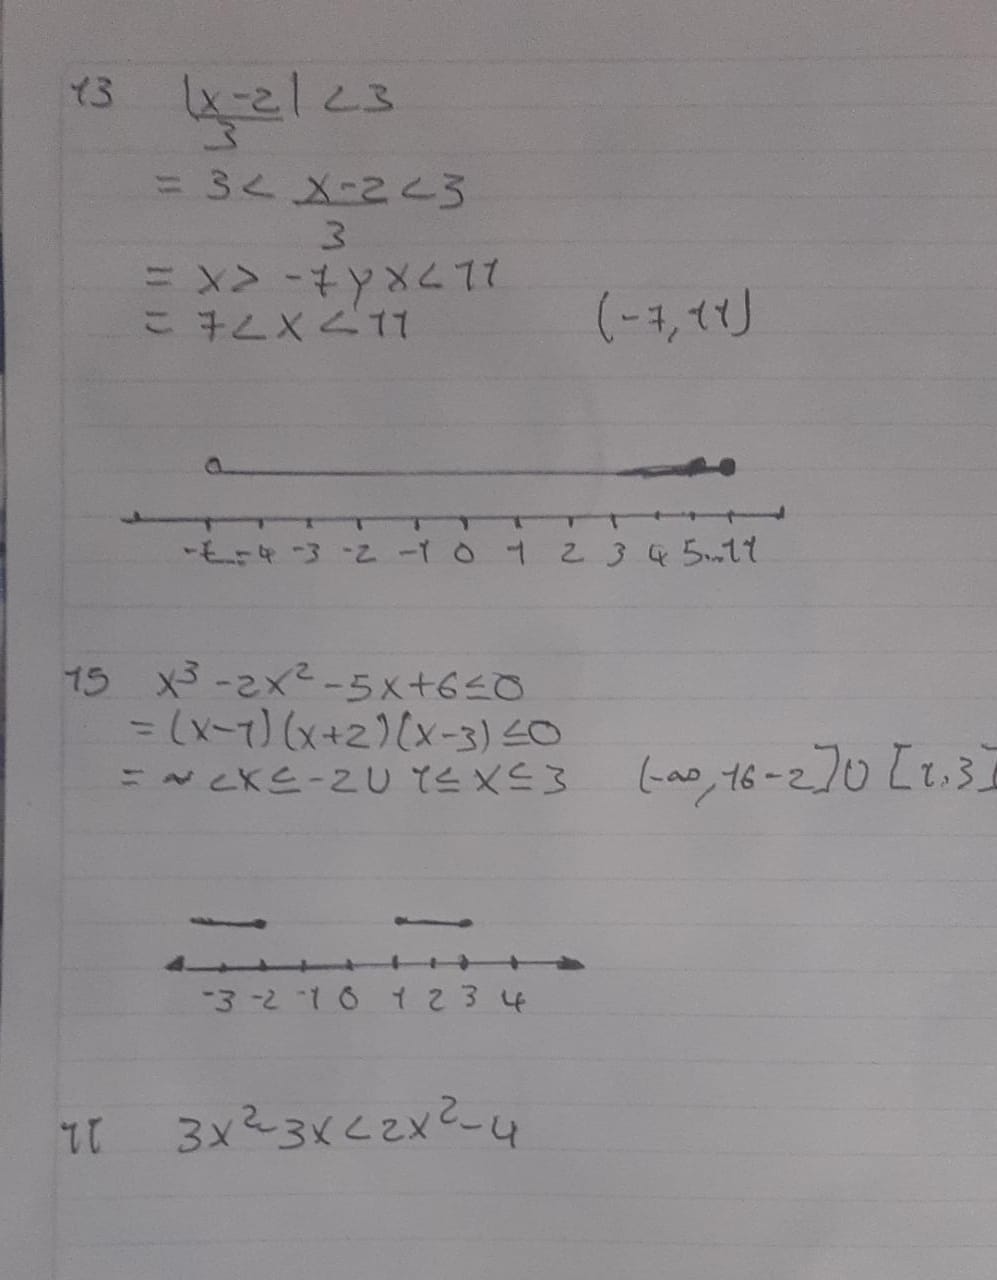 13 |x-2| <3
3
= 3< x-2 <3
3
= x> -7 y x<11
= 7<x<11 (-7, 11)
-4 -3 -2 -1 0 1 2 3 4 5...11
15 x³-2x²-5x+6≤0
= (x-1)(x+2)(x-3)≤0
= <x≤-2 U 1≤x≤3 (-∞, -2] U [1,3]
-3 -2 -1 0 1 2 3 4
3x²-3x<2x²-4